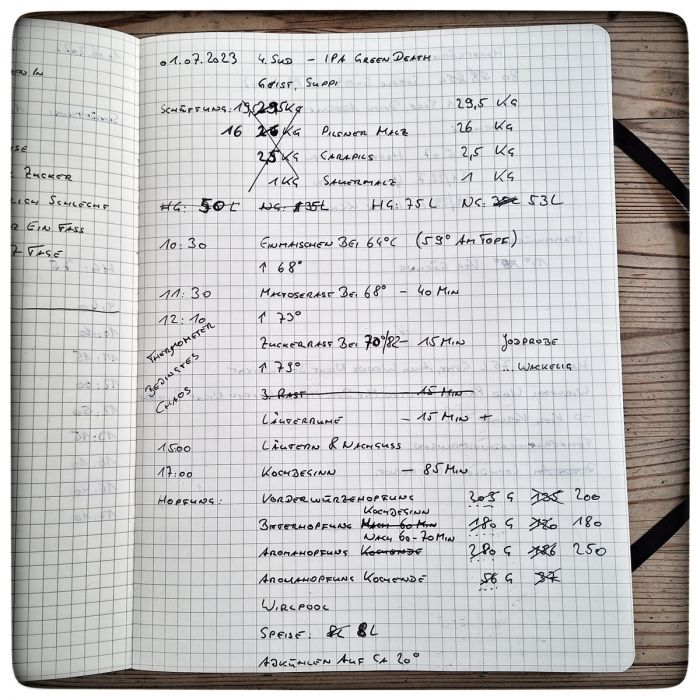 EN IN
SE
ZUCKER
LICH SCHLECHT
R EIN FASS
2 TAGE
01.07.2023 4. SUD – IPA GREEN DEATH
GEIST, SUPPI
SCHÜTTUNG: 19,5 29,5 KG 29,5 KG
16 26 KG PILSNER MALZ 26 KG
2,5 KG CARAPILS 2,5 KG
1 KG SAUERMALZ 1 KG
HG: 50 L NG: 35 L HG: 75 L NG: 53 L
10:30 EINMAISCHEN BEI 64°C (59° AM TOPF)
↑ 68°
11:30 MALTOSERAST BEI 68° – 40 MIN
12:10 ↑ 73°
THERMOMETER
BEDINGTES
CHAOS
ZUCKERRAST BEI 70°/82 – 15 MIN JODPROBE
↑ 79° ... WACKELIG
3. RAST – 15 MIN
LÄUTERRUHE – 15 MIN +
15:00 LÄUTERN & NACHGUSS
17:00 KOCHBEGINN – 85 MIN
HOPFUNG: VORDERWÜRZEHOPFUNG 205 G 135 200
KOCHBEGINN
BITTERHOPFUNG NACH 60 MIN 180 G 120 180
NACH 60-70 MIN
AROMAHOPFUNG KOCHENDE 280 G 186 250
AROMAHOPFUNG KOCHENDE 56 G 37
WIRLPOOL
SPEISE: 8 L
ABKÜHLEN AUF CA 20°